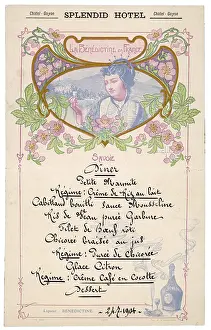 Châtel-Guyon SPLENDID HOTEL Châtel-Guyon
LA BÉNÉDICTINE EN FRANCE
SAVOIE
Dîner
Petite Marmite
Régime: Crème de Riz au lait
Cabillaud bouilli sauce Mousseline
Ris de Veau purée Garbure
Filet de Bœuf rôti
Chicorée braisée au jus
Régime: Purée de Chicorée
Glace Citron
Régime: Crème Café en Cocotte
Dessert
Liqueur BÉNÉDICTINE